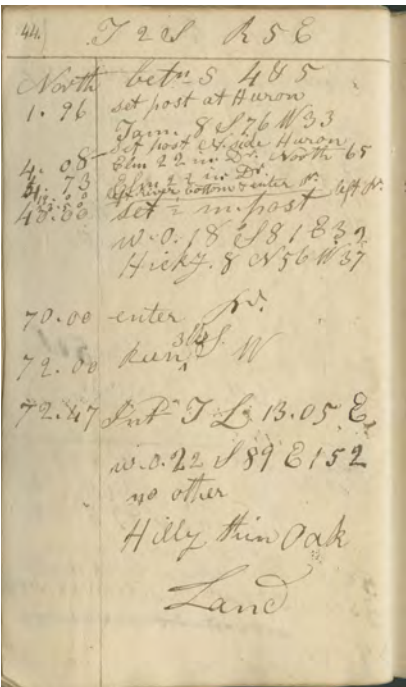 44. T 2 S R 5 E
North betn S 4 & 5
1.96 set post at Huron
Tam. 8 S 76 W 33
set post N. side Huron
4.08 Elm 22 in Dr. North 65
73 Elm 22 in Dr.
left river bottom & enter left
40.00 set ½ m. post
w.o. 18 S 81 E 39
Hicky. 8 N 56 W 37
70.00 enter
72.00 run S W
72.47 Int T L 13.05 E.
w.o. 22 S 89 E 152
no other
Hilly thin Oak
Land